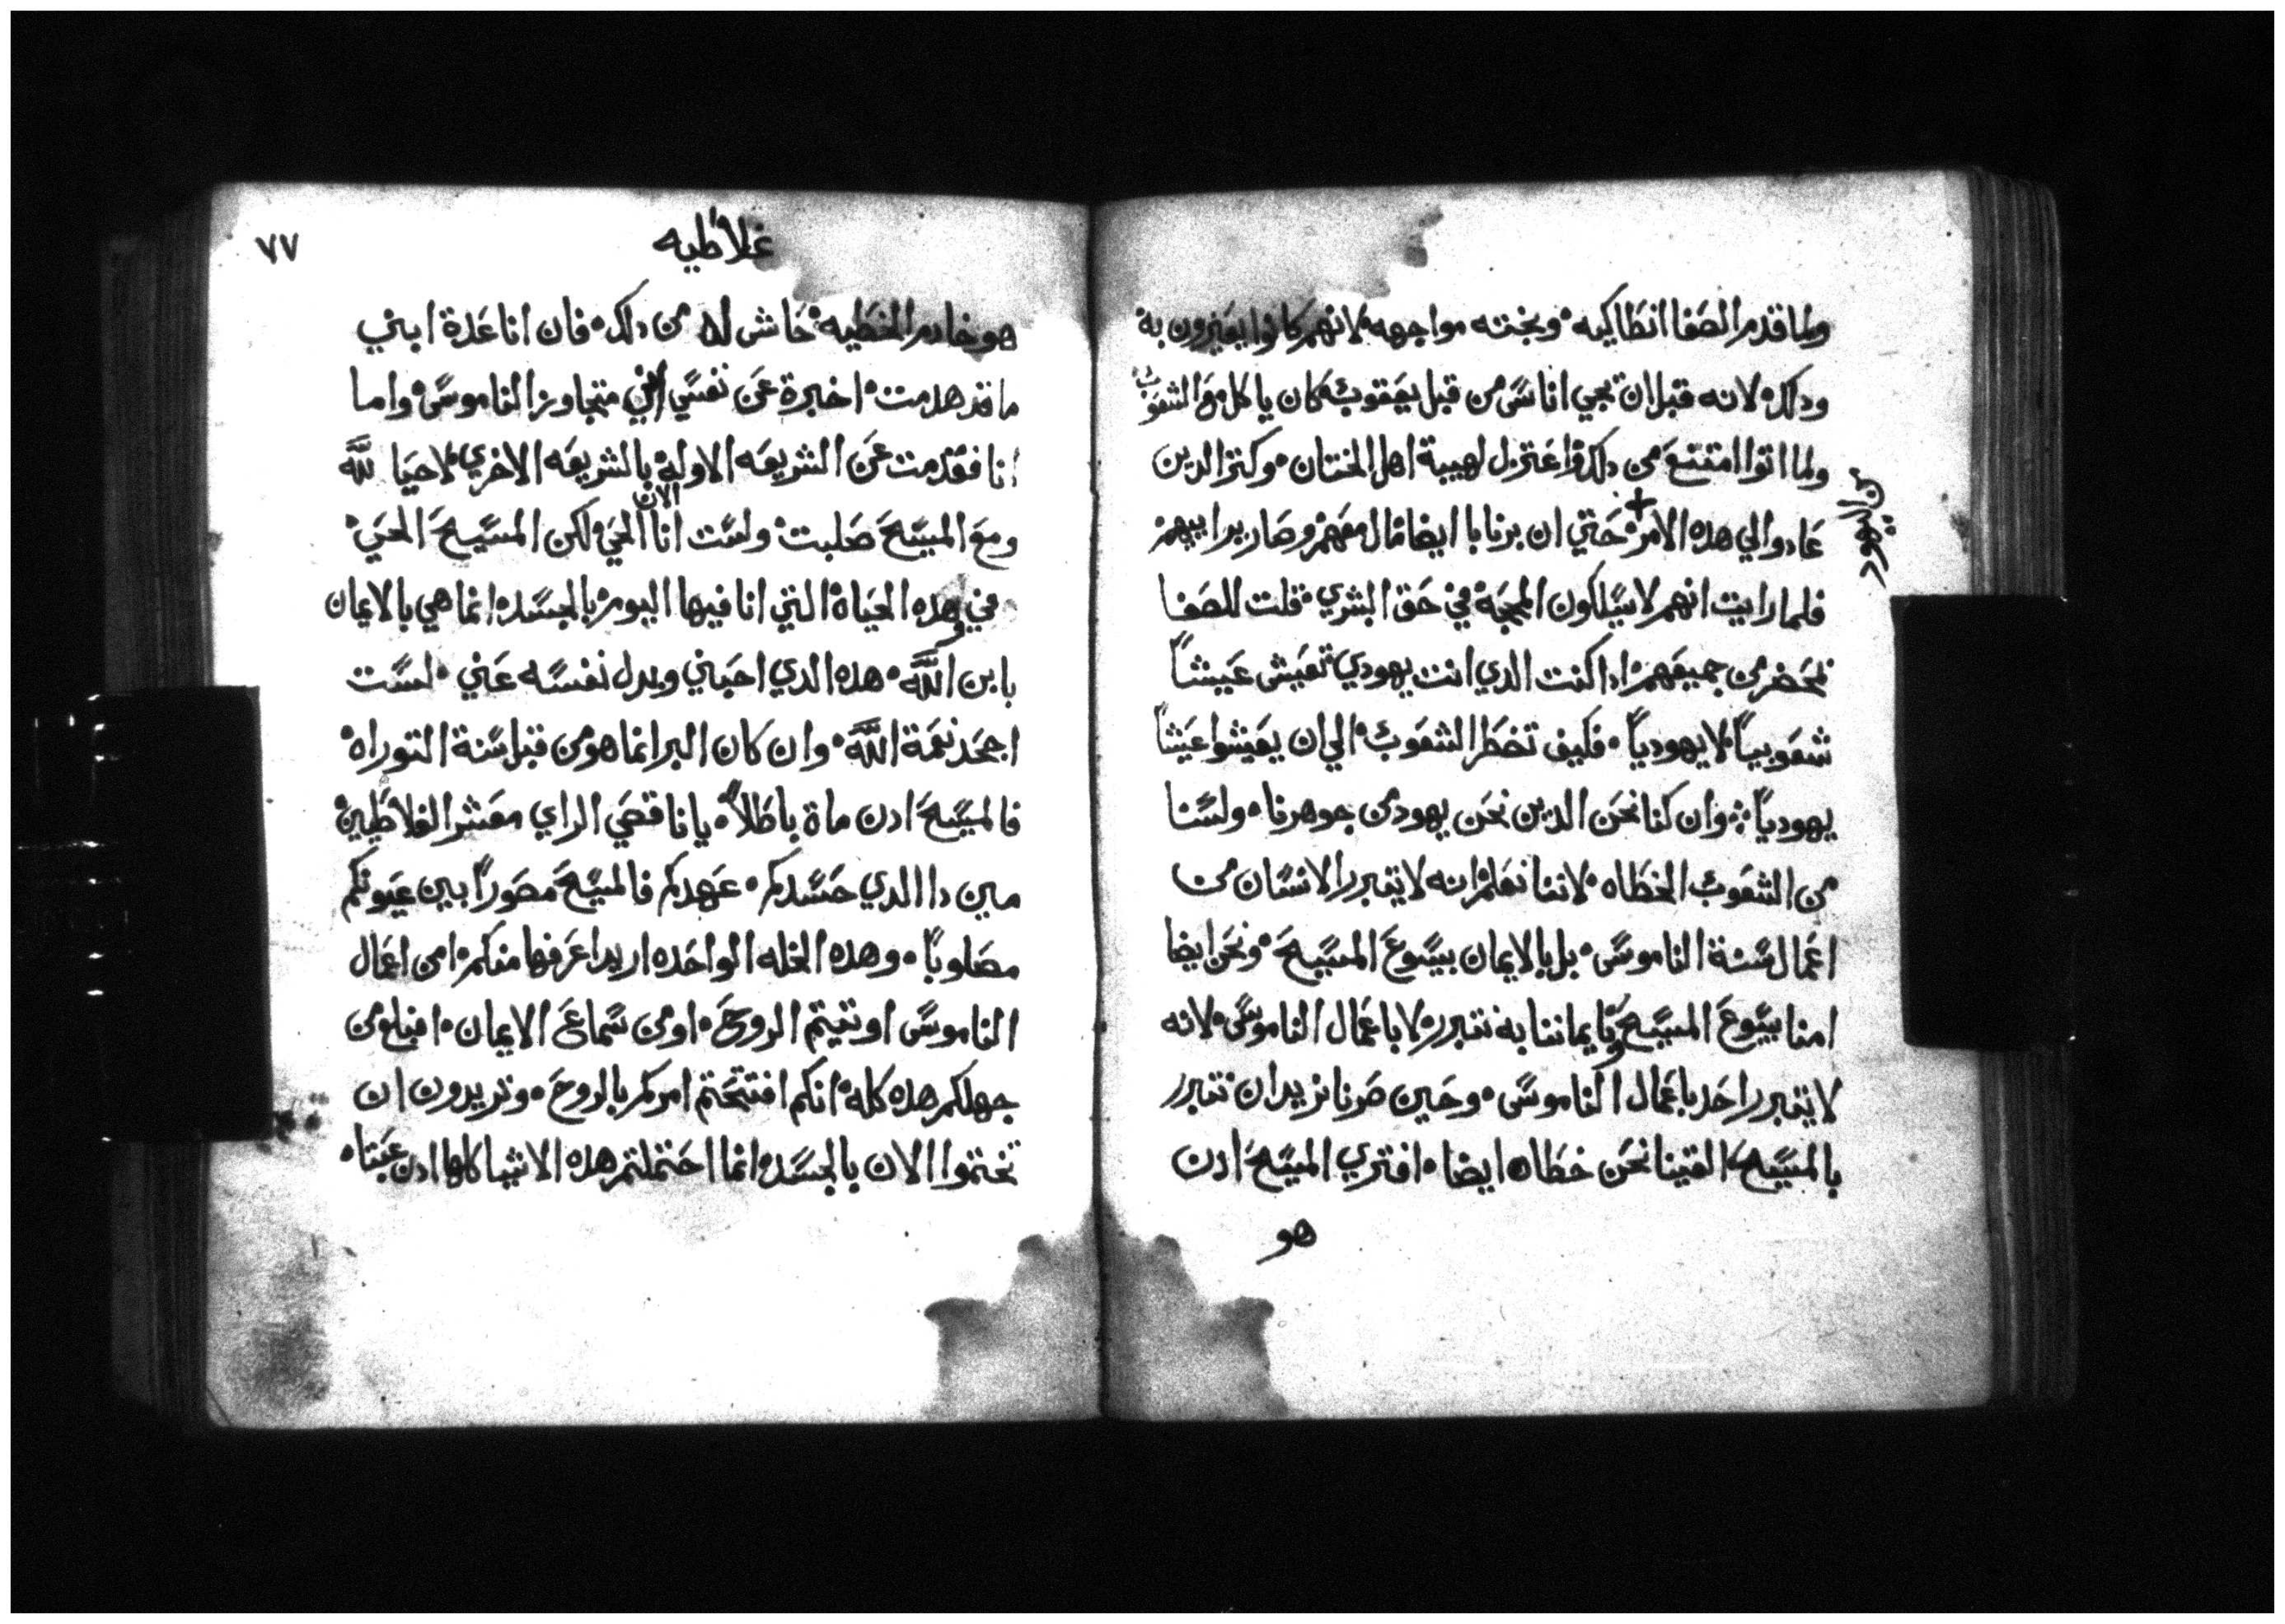 ولما قدم الصفا انطاكيه وبخته مواجهه لانهم كانوا يعيرون به
ودلك لانه قبل ان يجي اناس من قبل يعقوب كان ياكل مع الشعوب
ولما اتوا امتنع من دلك واعتزل لهيبة اهل الختان وكتر الدين
عادوا الي هده الامر حتي ان برنابا ايضا مال معهم وصار براييهم
من اليهود
فلما رايت انهم لا يسلكون المحجة في حق البشري قلت للصفا
بمحضر من جميعهم ادا كنت الدي انت يهودي تعيش عيشاً
شعوبياً لا يهودياً فكيف تضطر الشعوب الي ان يعيشوا عيشاً
يهودياً وان كنا نحن الدين نحن يهود من جوهرنا ولسنا
من الشعوب الخطاه لاننا نعلم انه لا يتبرر الانسان من
اعمال سنة الناموس بل بالايمان بيسوع المسيح ونحن ايضا
امنا بيسوع المسيح وبايماننا به نتبرر لا باعمال الناموس لانه
لا يتبرر احد باعمال الناموس وحين صرنا نريد ان نتبرر
بالمسيح الفينا نحن خطاه ايضا افتري المسيح ادن
هو
٧٧
غلاطيه
هو خادم الخطيه حاش له من دلك فان انا عدة ابني
ما قد هدمت اخبرة عن نفسي انني متجاوز الناموس واما
انا فقد مت عن الشريعه الاوله بالشريعه الاخري لاحيا لله
ومع المسيح صلبت ولست انا الان الحي لكن المسيح الحي
في وهده الحياة التي انا فيها اليوم بالجسد انما هي بالايمان
بابن الله هده الدي احبني وبدل نفسه عني لست
اجحد نعمة الله وان كان البر انما هو من قبل سنة التوراه
فالمسيح ادن ماة باطلاً يا ناقصي الراي معشر الغلاطيين
مين دا الدي حسدكم عهدكم فالمسيح مصوراً بين عيونكم
مصلوباً وهده الخله الواحده اريد اعرفها منكم امن اعمال
الناموس اوتيتم الروح او من سماع الايمان افبلغ من
جهلكم هده كله انكم افتتحتم امركم بالروح وتريدون ان
تختموا الان بالجسد انما احتملتم هده الاشيا كلها ادن عبتاه